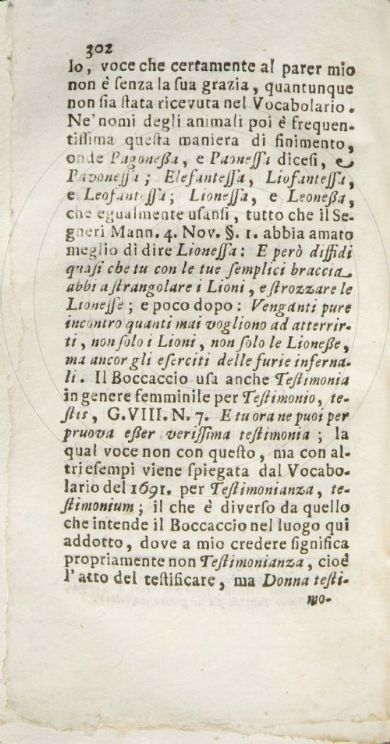 302
lo, voce che certamente al parer mio
non è ſenza la ſua grazia, quantunque
non ſia ſtata ricevuta nel Vocabolario.
Ne' nomi degli animali poi è frequen-
tiſſima queſta maniera di finimento,
onde Pagoneßa, e Paoneſſa diceſi, e
Pavoneſſa; Elefanteſſa, Liofanteſſa,
e Leofanteſſa; Lioneſſa, e Leoneßa,
che egualmente uſanſi, tutto che il Se-
gneri Mann. 4. Nov. §. 1. abbia amato
meglio di dire Lioneſſa: E però diffidi
quaſi che tu con le tue ſemplici braccia
abbi a ſtrangolare i Lioni, e ſtrozzare le
Lioneſſe; e poco dopo: Venganti pure
incontro quanti mai vogliono ad atterrir-
ti, non ſolo i Lioni, non ſolo le Lioneße,
ma ancor gli eſerciti delle furie inferna-
li. Il Boccaccio uſa anche Teſtimonia
in genere femminile per Teſtimonio, te-
ſtis, G.VIII. N. 7. E tu ora ne puoi per
pruova eßer veriſſima teſtimonia; la
qual voce non con queſto, ma con al-
tri eſempi viene ſpiegata dal Vocabo-
lario del 1691. per Teſtimonianza, te-
ſtimonium; il che è diverſo da quello
che intende il Boccaccio nel luogo qui
addotto, dove a mio credere ſignifica
propriamente non Teſtimonianza, cioè
l'atto del teſtificare, ma Donna teſti-
mo-